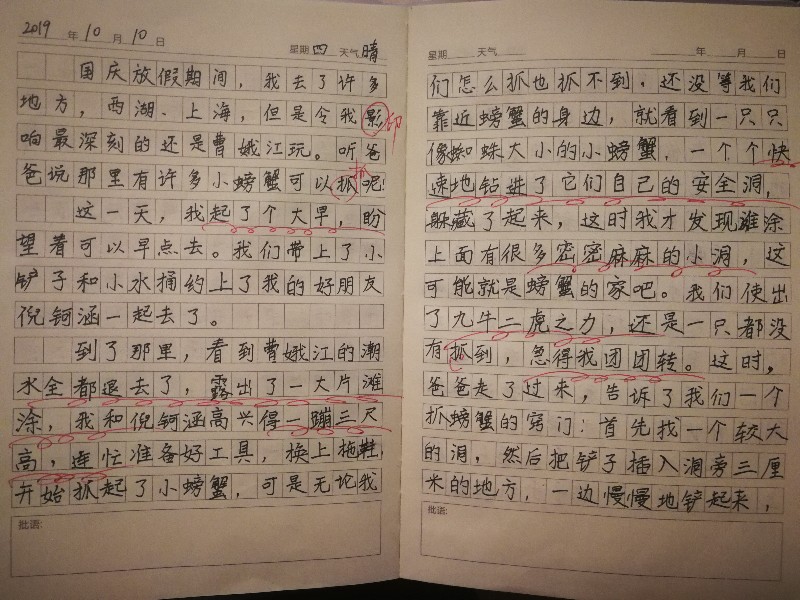 2019年10月10日 星期四 天气晴
国庆放假期间，我去了许多
地方，西湖、上海，但是令我影
印
响最深刻的还是曹娥江玩。听爸
抓
爸说那里有许多小螃蟹可以抓呢!
这一天，我起了个大早，盼
望着可以早点去。我们带上了小
铲子和小水捅约上了我的好朋友
倪钶涵一起去了。
到了那里，看到曹娥江的潮
水全都退去了，露出了一大片滩
涂，我和倪钶涵高兴得一蹦三尺
高，连忙准备好工具，换上拖鞋，
开始抓起了小螃蟹，可是无论我
批语：
星期 天气 年 月 日
们怎么抓也抓不到，还没等我们
靠近螃蟹的身边，就看到一只只
像蜘蛛大小的小螃蟹，一个个快
速地钻进了它们自己的安全洞，
躲藏了起来，这时我才发现滩涂
上面有很多密密麻麻的小洞，这
可能就是螃蟹的家吧。我们使出
了九牛二虎之力，还是一只都没
有抓到，急得我团团转。这时，
爸爸走了过来，告诉了我们一个
抓螃蟹的窍门：首先找一个较大
的洞，然后把铲子插入洞旁三厘
米的地方，一边慢慢地铲起来，
批语：